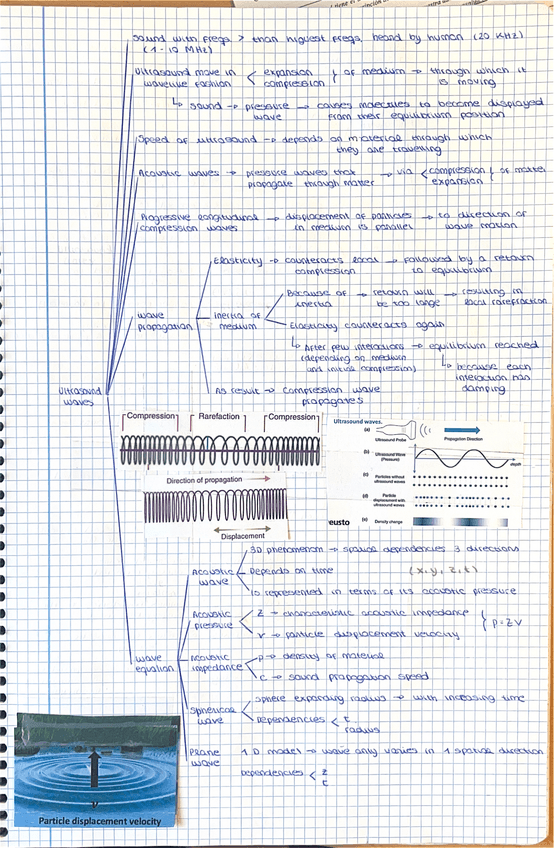 Sound with freqs > than highest freqs heard by human (20 KHz)
(1-10 MHz)
Ultrasound move in wavelike fashion < expansion compression } of medium → through which it is moving
↳ sound wave → pressure → causes molecules to become displayed from their equilibrium position
Speed of ultrasound → depends on material through which they are travelling
Acoustic waves → pressure waves that propagate through matter → via < compression expansion } of matter
Progressive longitudinal compression waves → displacement of particles in medium is parallel → to direction of wave motion
Ultrasound waves
wave propagation
Elasticity → counteracts local compression → followed by a return to equilibrium
inertia of medium
Because of inertia → return will be too large → resulting in local rarefraction
Elasticity counteracts again
↳ After few interactions (depending on medium and initial compression) → equilibrium reached
↳ because each interaction has damping
As result → Compression wave propagates
Compression
Rarefaction
Compression
Direction of propagation
Displacement
Ultrasound waves.
(a)
Ultrasound Probe
Propagation Direction
(b)
Ultrasound Wave
(Pressure)
depth
(c)
Particles without
ultrasound waves
(d)
Particle
displacement with
ultrasound waves
(e)
Density change
eusto
wave equation
Acoustic wave
3D phenomenon → spatial dependencies 3 directions
Depends on time (x, y, z, t)
is represented in terms of its acoustic pressure
Acoustic pressure
Z → characteristic acoustic impedance
v → particle displacement velocity
} p = Z v
Acoustic impedance
ρ → density of material
c → sound propagation speed
Spherical wave
Sphere expanding radius → with increasing time
Dependencies < t radius
Plane wave
1 D model → wave only varies in 1 spatial direction
Dependencies < z t
v
Particle displacement velocity